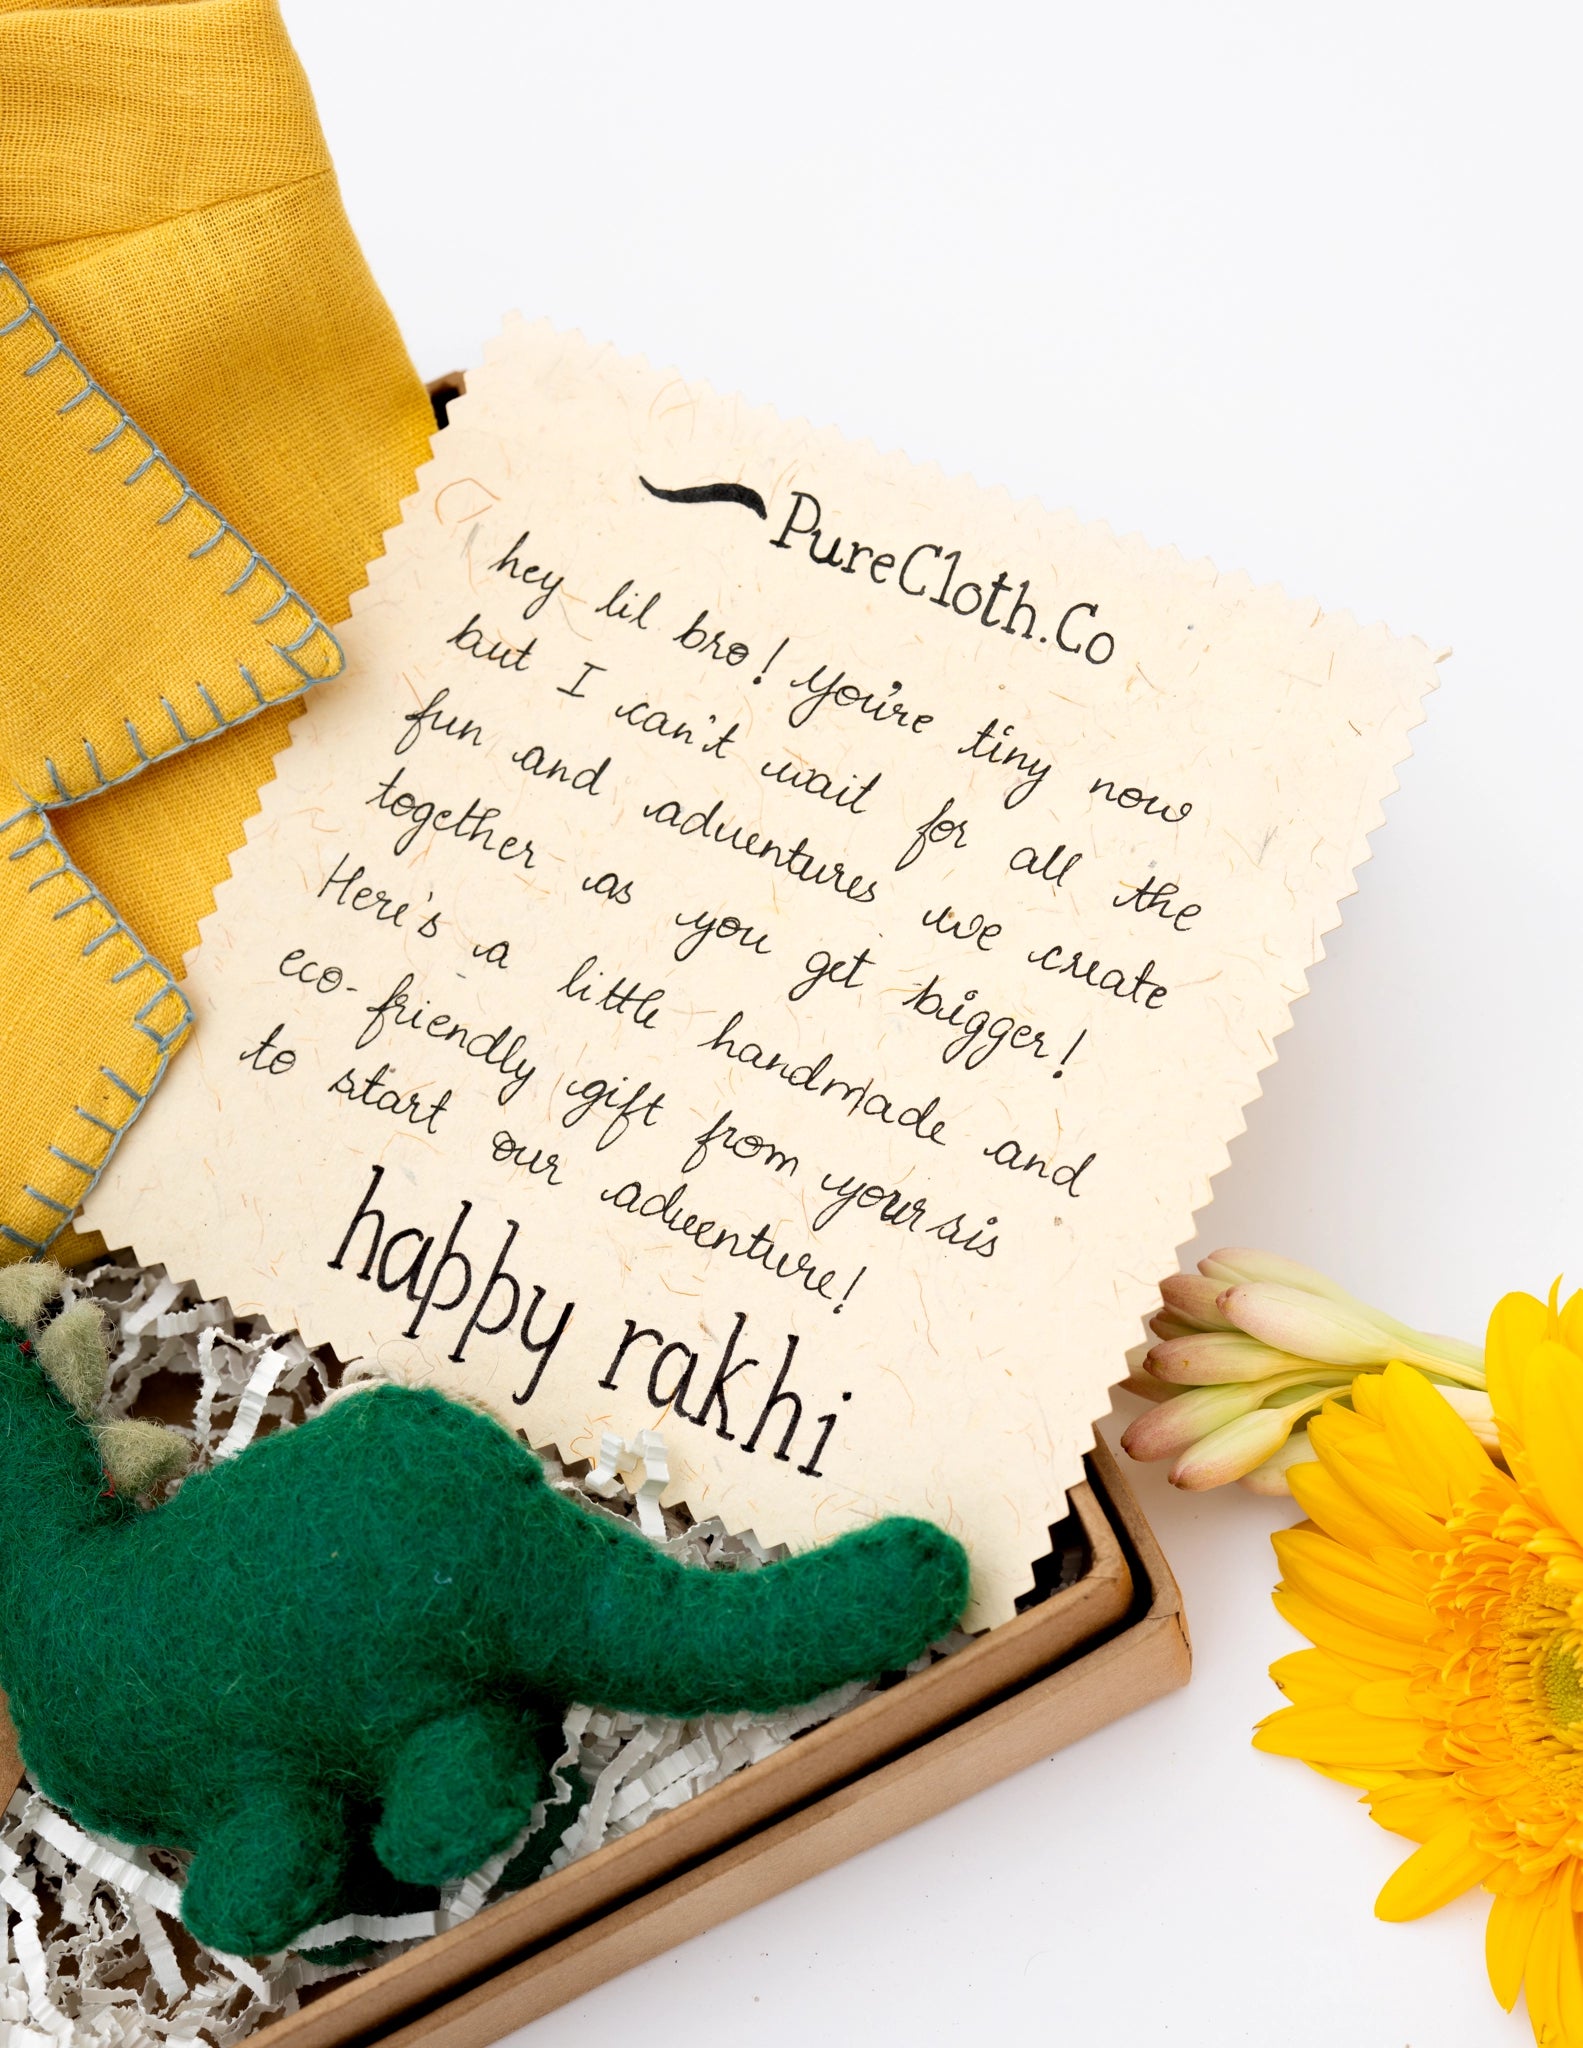 PureCloth.Co
hey lil bro! You're tiny now
but I can't wait for all the
fun and adventures we create
together as you get bigger!
Here's a little handmade and
eco-friendly gift from your sis
to start our adventure!
happy rakhi